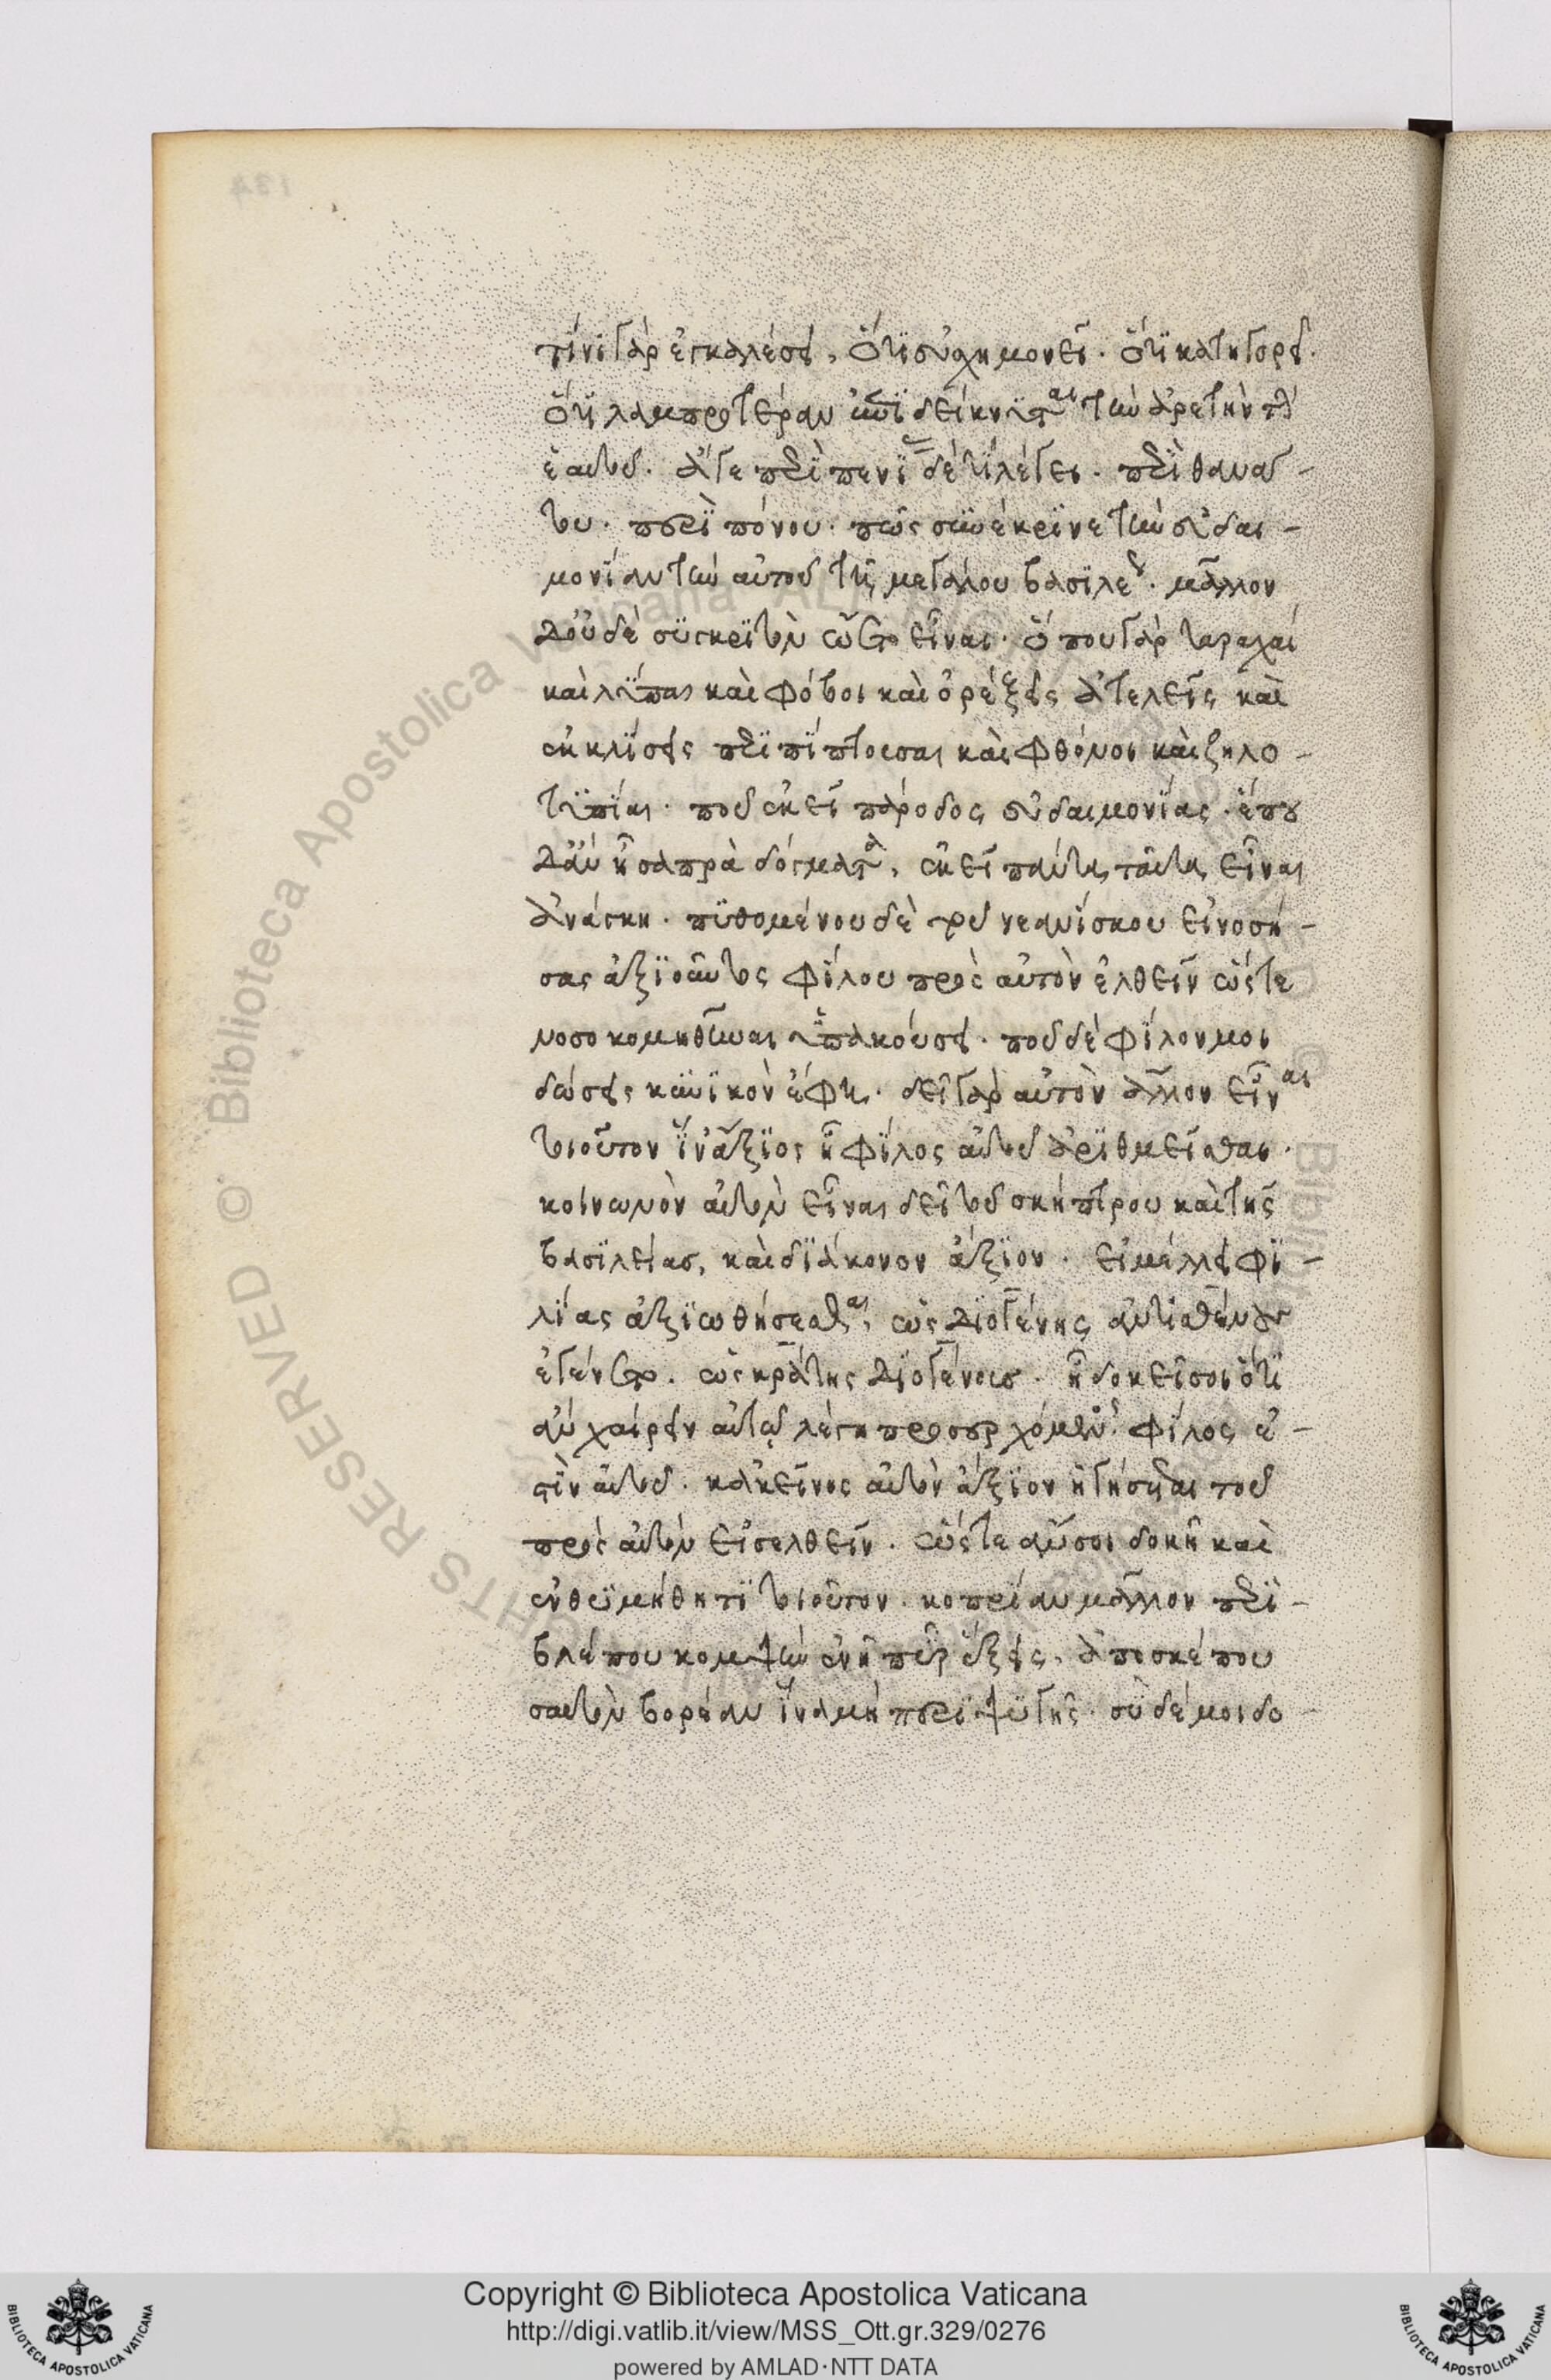 τίνι γὰρ ἐγκαλέσει, ὅτι εὐσχημονεῖ. ὅτι κατηγορεῖ.
ὅτι λαμπροτέραν ἐπιδείκνυται τὴν ἀρετὴν τὴν
ἑαυτοῦ. ἄγε περὶ πενίας δὲ τί λέγει. περὶ θανά-
του. περὶ πόνου. πῶς συνέκρινε τὴν εὐδαι-
μονίαν τὴν αὐτοῦ τῆ μεγάλου βασιλέως. μᾶλλον
δ' οὐδὲ συγκριτὸν ᾤετο εἶναι. ὅπου γὰρ ταραχαὶ
καὶ λύπαι καὶ φόβοι καὶ ὀρέξεις ἀτελεῖς καὶ
ἐκκλίσεις περιπίπτουσαι καὶ φθόνοι καὶ ζηλο-
τυπίαι. ποῦ ἐκεῖ πάροδος εὐδαιμονίας. ὅπου
δ' ἂν ἦ σαπρὰ δόγματα, ἐκεῖ πάντα ταῦτα εἶναι
ἀνάγκη. πυθομένου δὲ τοῦ νεανίσκου εἰ νοσή-
σας ἀξιοῦντος φίλου πρὸς αὐτὸν ἐλθεῖν ὥστε
νοσοκομηθῆναι ὑπακούσει. ποῦ δὲ φίλον μοι
δώσεις κυνικὸν ἔφη. δεῖ γὰρ αὐτὸν ἄλλον εἶναι
τοιοῦτον ἵν' ἄξιος ἦ φίλος αὐτοῦ ἀριθμεῖσθαι.
κοινωνὸν αὐτὸν εἶναι δεῖ τοῦ σκήπτρου καὶ τῆς
βασιλείας, καὶ διάκονον ἄξιον. εἰ μέλλει φι-
λίας ἀξιωθήσεσθαι, ὡς Διογένης Ἀντισθένους
ἐγένετο. ὡς Κράτης Διογένους. ἢ δοκεῖ σοι ὅτι
ἂν χαίρειν αὐτῷ λέγη προσερχόμενος φίλος ἐ-
στὶν αὐτοῦ. κἀκεῖνος αὐτὸν ἄξιον ἡγήσεται τοῦ
πρὸς αὐτὸν εἰσελθεῖν. ὥστε ἄν σοι δοκῆ καὶ
ἐνθυμήθητί τοιοῦτον. κοπρίαν μᾶλλον περι-
βλέπου κομψὴν ἐν ἧ πυρέξεις. ἀποσκέπου
σαυτὸν βορέαν ἵνα μὴ περιψυγῆς. σὺ δέ μοι δο-
Copyright © Biblioteca Apostolica Vaticana
http://digi.vatlib.it/view/MSS_Ott.gr.329/0276
powered by AMLAD·NTT DATA